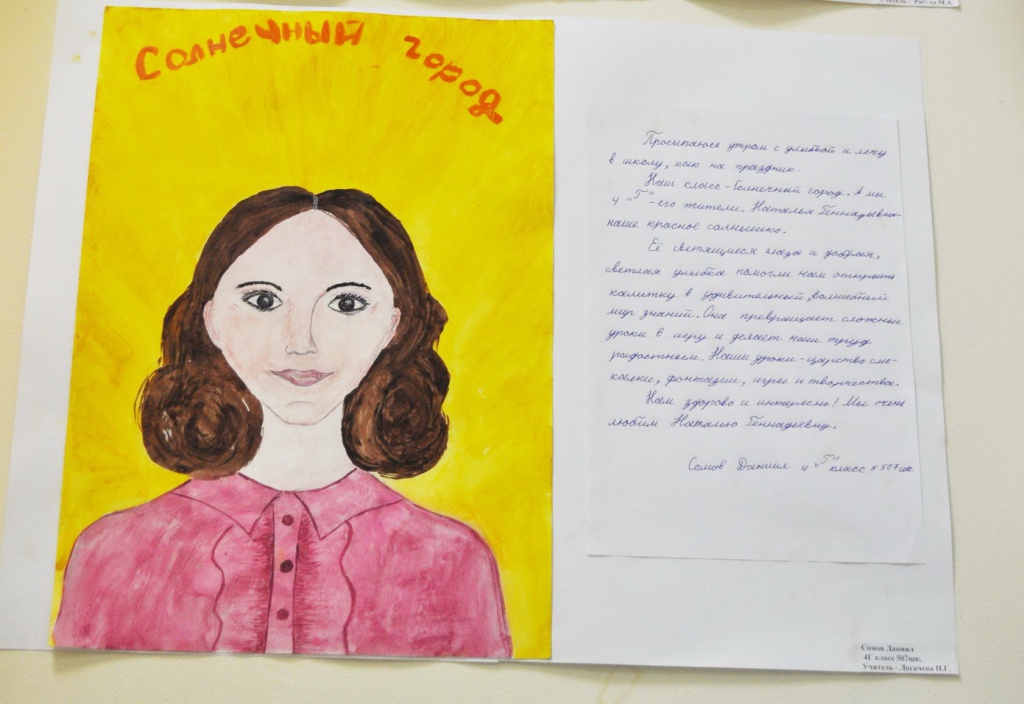 Учитель - Ра
Солнечный город
Просыпаюсь утром с улыбкой и лечу
в школу, как на праздник.
Наш класс - Солнечный город. А мы
4 "Г" - его жители. Наталья Геннадьевна -
наше красное солнышко.
Её светящиеся глаза и добрая,
светлая улыбка помогли нам открыть
калитку в удивительный, волшебный
мир знаний. Она превращает сложные
уроки в игру и делает наш труд
радостным. Наши уроки - царство сме-
калки, фантазии, игры и творчества.
Нам здорово и интересно! Мы очень
любим Наталью Геннадьевну.
Сомов Даниил 4 "Г" класс 507 шк.
Сомов Даниил
4Г класс 507шк.
Учитель - Логачева Н.Г.